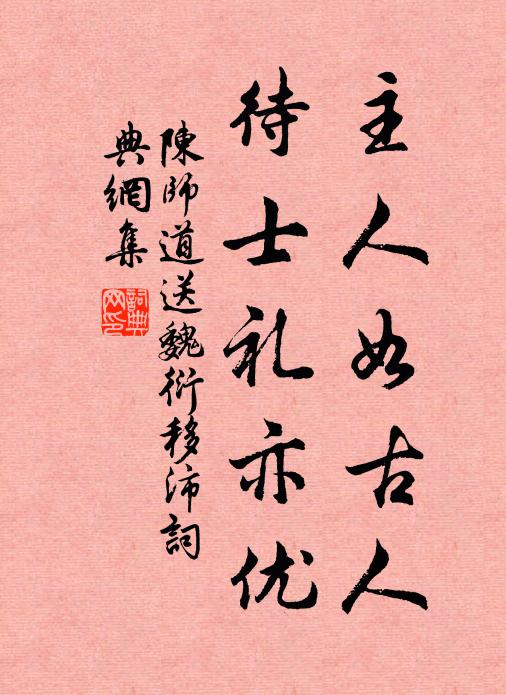 主人如古人
待士礼亦优
陳師道送魏衍移沛詞
典網集
詞典网印